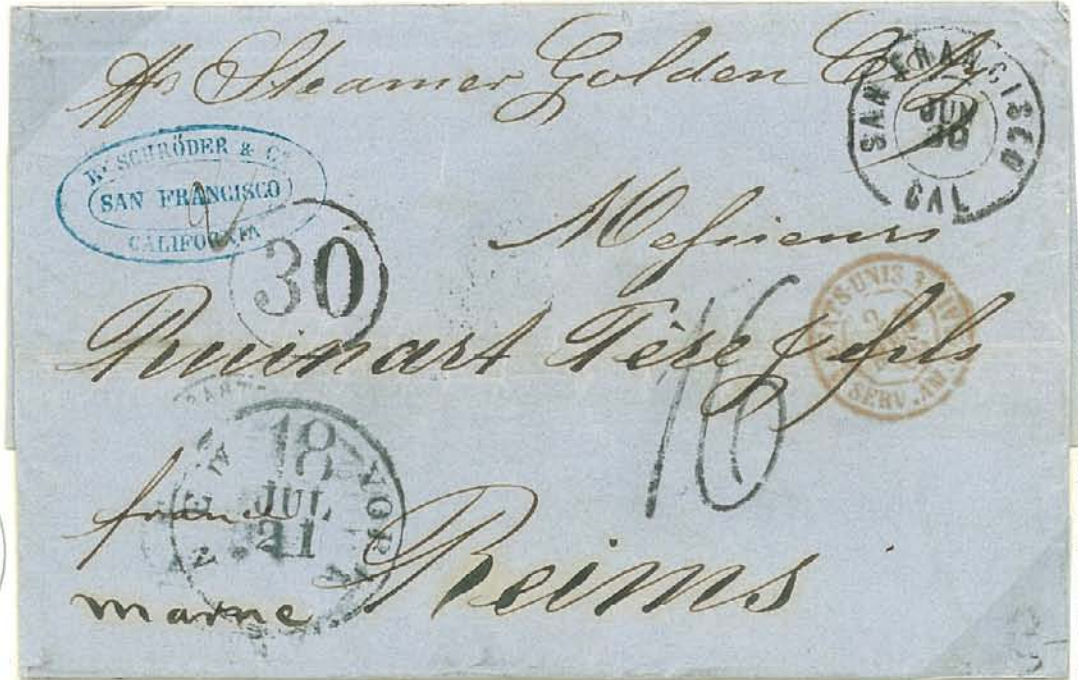 Pr Steamer Golden City
SAN FRANCISCO
JUN
30
CAL
Rt SCHRÖDER & Co
SAN FRANCISCO
CALIFORNIA
30
Messieurs
Ruinart Père & fils
16
ETATS-UNIS
SERV. AM.
18
JUL
21
YORK
france
Reims
marne